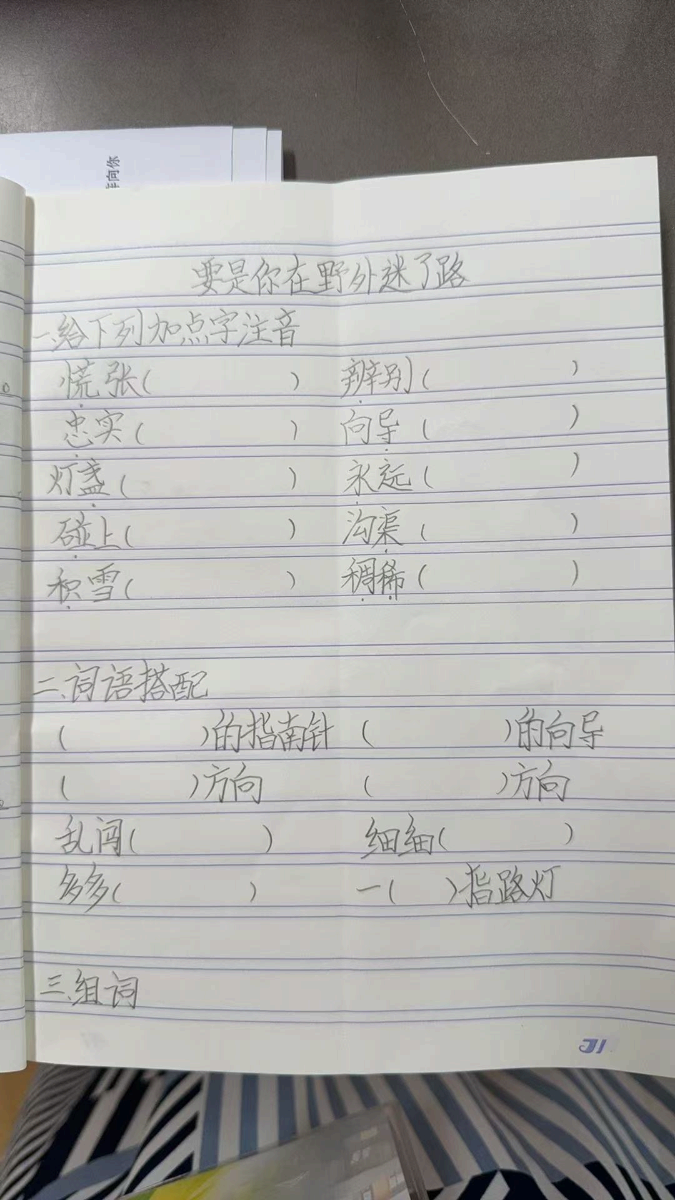 样向你
要是你在野外迷了路
一、给下列加点字注音
慌张( ) 辨别( )
忠实( ) 向导( )
灯盏( ) 永远( )
碰上( ) 沟渠( )
积雪( ) 稠稀( )
二、词语搭配
( )的指南针 ( )的向导
( )方向 ( )方向
乱闯( ) 细细( )
多多( ) 一( )指路灯
三、组词
31